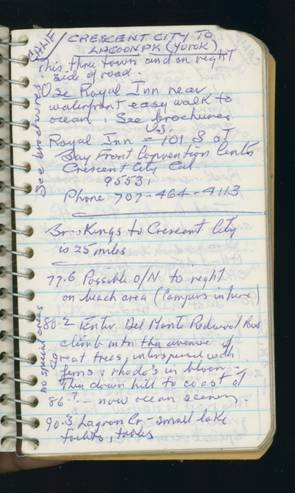 CRESCENT CITY TO
LAGOON PK (YUROK)
This thru town and on right
side of road.
Use Royal Inn near
waterfront easy walk to
ocean. See brochures
U.S.
Royal Inn - 101 S at
Bay Front Convention Center
Crescent City Cal
95531
Phone 707-464-4113
Brookings to Crescent City
is 25 miles
77.6 Possible O/N to right
on beach area (Campers in here)
80.2 Enter Del Monte Redwood
climb into the avenue of
great trees, interspersed with
ferns & rhodo's in bloom
Then down hill to coast at
86.? - now ocean scenery.
90.3 Lagoon Cr - small lake
toilets, tables
See brochures
no special areas